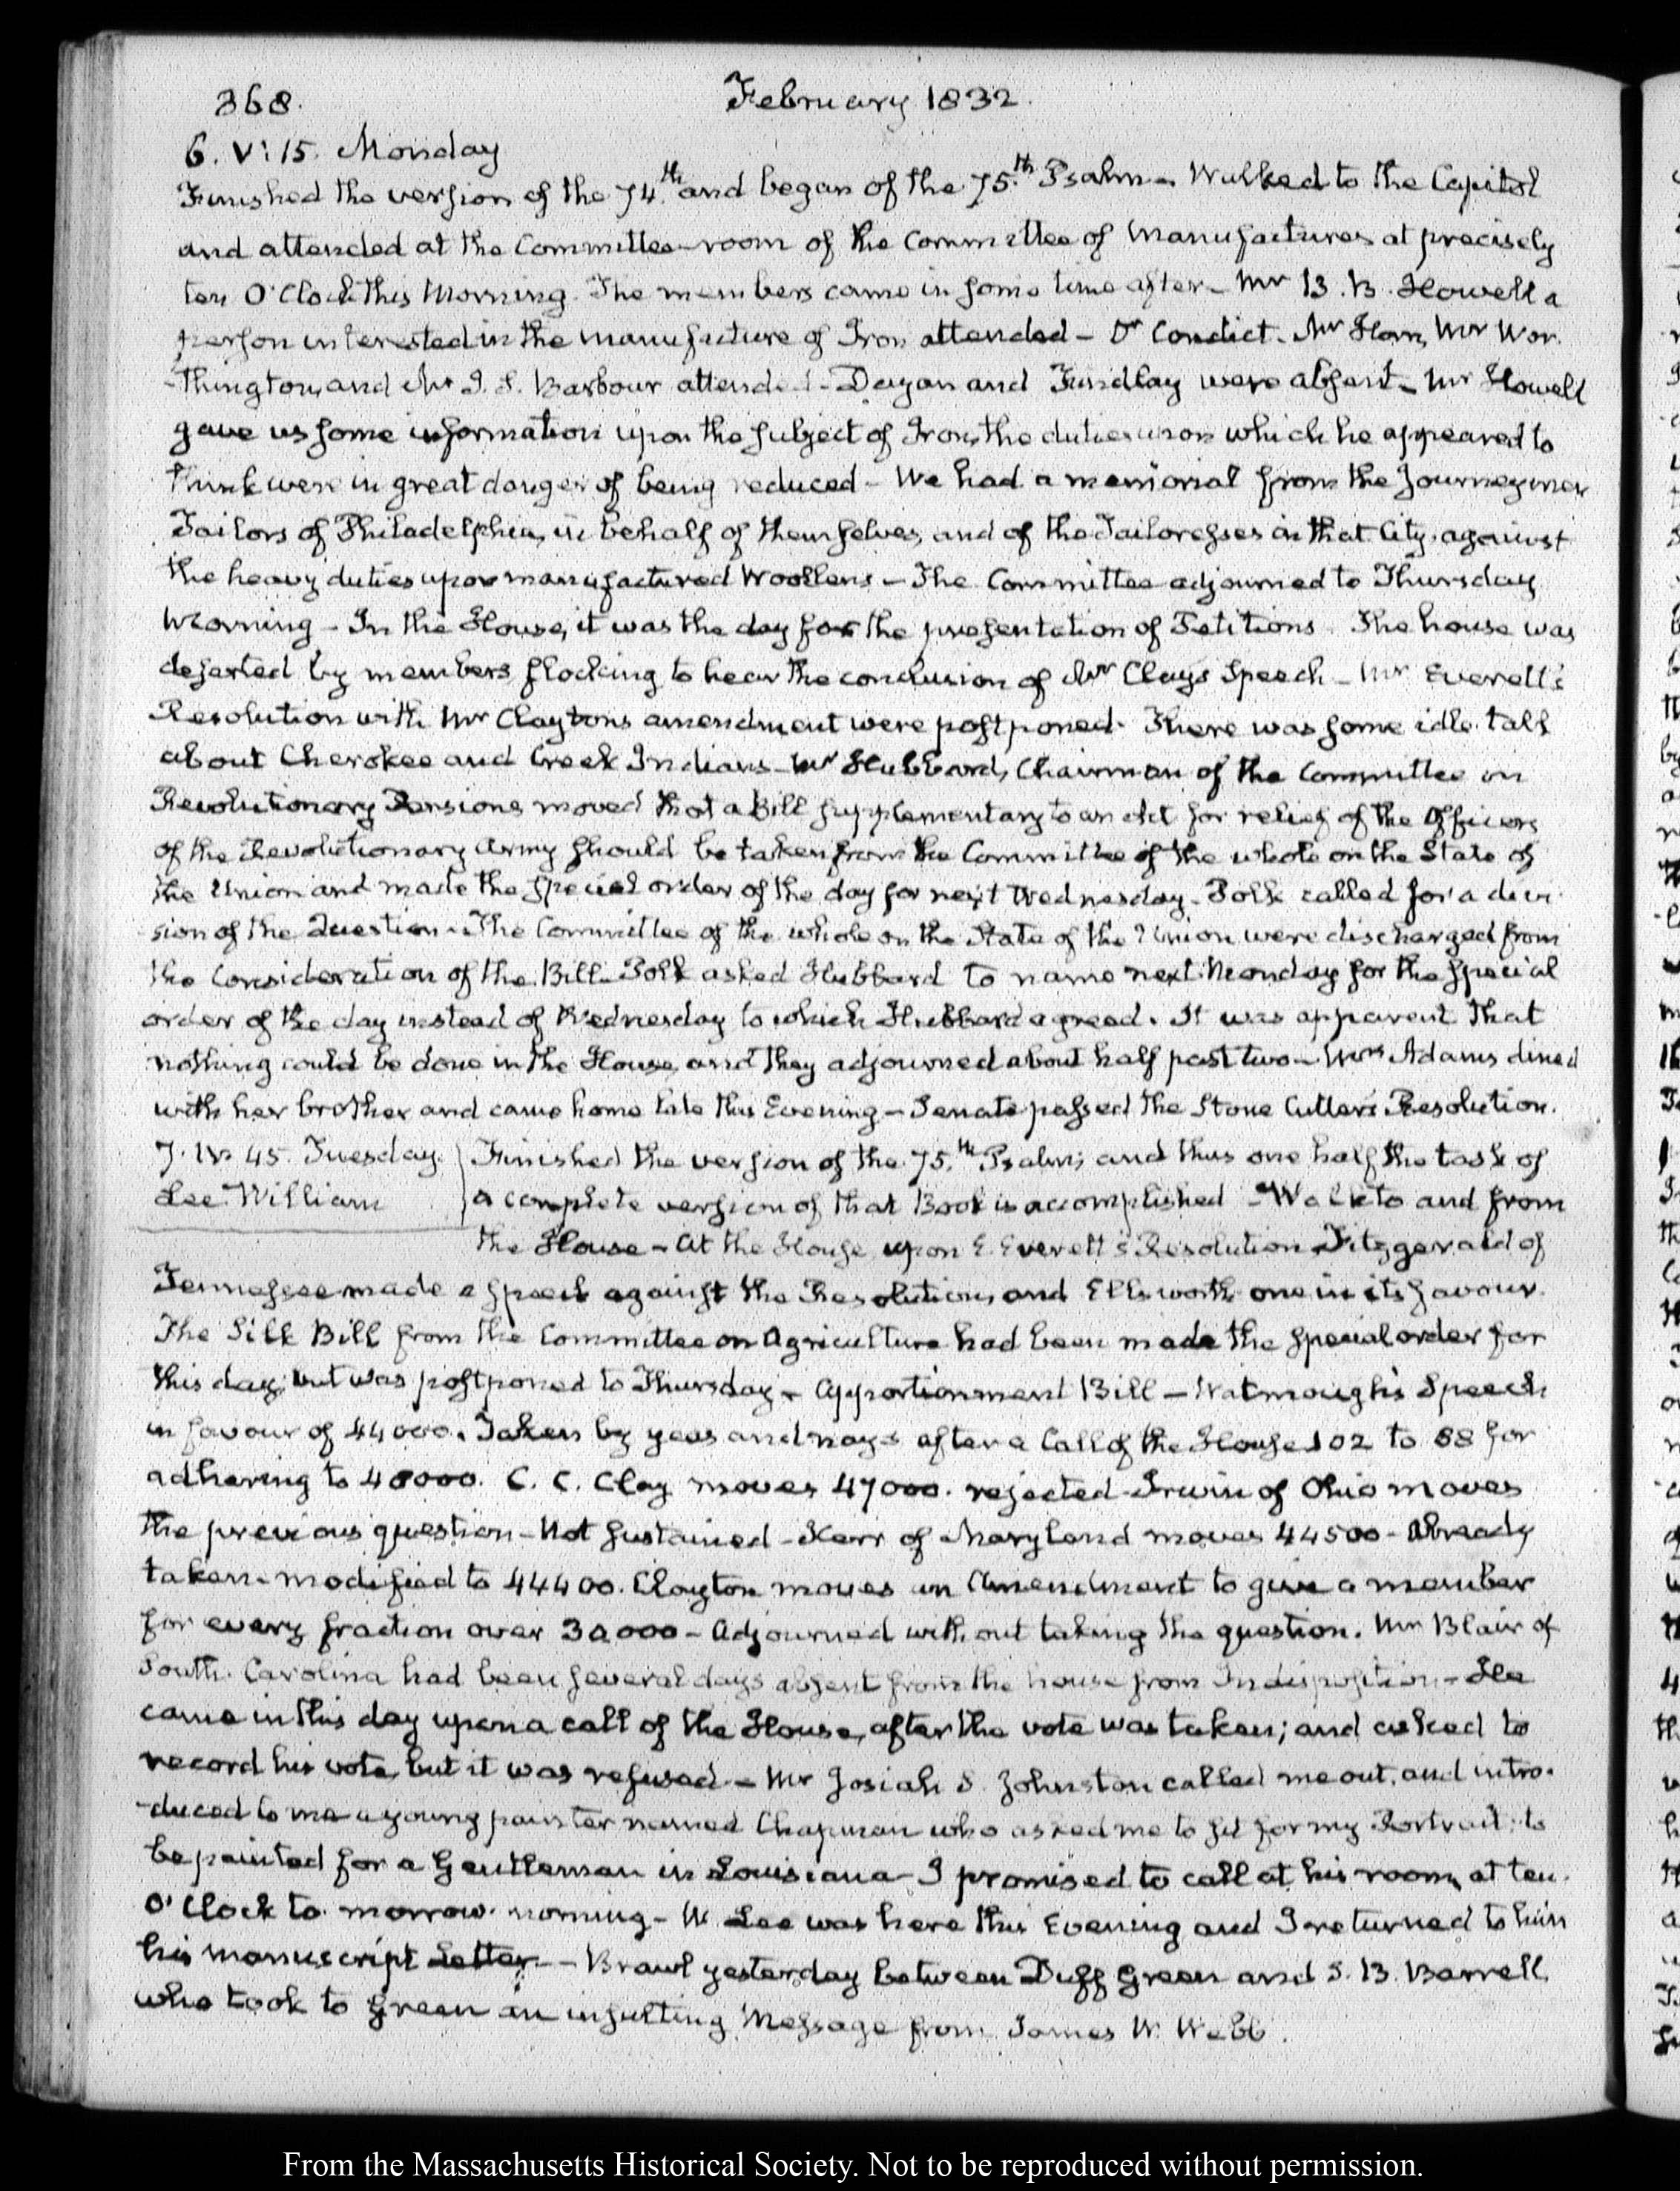 368.
February 1832.
6. V:15. Monday
Finished the version of the 74th. and began of the 75th. Psalm - Walked to the Capitol
and attended at the Committee-room of the Committee of Manufactures at precisely
ten O'Clock this Morning. The members came in some time after - Mr B. B. Howell a
person interested in the manufacture of Iron attended - Dr Condict. Mr Horn, Mr Wor-
-thington, and Mr J. S. Barbour attended - Dayan and Findlay were absent - Mr Howell
gave us some information upon the subject of Iron, the duties upon which he appeared to
think were in great danger of being reduced - We had a memorial from the Journeymen
Tailors of Philadelphia, in behalf of themselves, and of the Tailoresses in that City, against
the heavy duties upon manufactured Woollens - The Committee adjourned to Thursday
Morning - In the House, it was the day for the presentation of Petitions. The house was
deserted by members flocking to hear the conclusion of Mr Clay's Speech - Mr Everett's
Resolution with Mr Clayton's amendment were postponed. There was some idle talk
about Cherokee and Creek Indians - Mr Hubbard, Chairman of the Committee on
Revolutionary Pensions moved that a Bill supplementary to an Act for relief of the Officers
of the Revolutionary Army should be taken from the Committee of the whole on the State of
the Union and made the special order of the day for next Wednesday. Polk called for a divi-
sion of the Question - The Committee of the whole on the State of the Union were discharged from
the Consideration of the Bill - Polk asked Hubbard to name next Monday for the special
order of the day instead of Wednesday to which Hubbard agreed. It was apparent that
nothing could be done in the House, and they adjourned about half past two - Mrs Adams dined
with her brother and came home late this Evening - Senate passed the Stone Cutters Resolution.
7. IV. 45. Tuesday.
Lee William
Finished the version of the 75.th Psalm; and thus one half the task of
a complete version of that Book is accomplished - Walk to and from
the House - At the House upon E. Everett's Resolution Fitzgerald of
Tennessee made a speech against the Resolution, and Ellsworth one in its favour.
The Silk Bill from the Committee on Agriculture had been made the special order for
this day, but was postponed to Thursday - Apportionment Bill - Watmough's Speech
in favour of 44000. Taken by yeas and nays after a Call of the House 102 to 88 for
adhering to 48000. C. C. Clay moves 47000. rejected - Irwin of Ohio moves
the previous question - Not sustained - Kerr of Maryland moves 44500 - Already
taken - modified to 44400. Clayton moves an Amendment to give a member
for every fraction over 30,000 - Adjourned without taking the question. Mr Blair of
South Carolina had been several days absent from the house from Indisposition - He
came in this day upon a call of the House, after the vote was taken; and asked to
record his vote, but it was refused - Mr Josiah S. Johnston called me out, and intro-
-duced to me a young painter named Chapman who asked me to sit for my Portrait, to
be painted for a Gentleman in Louisiana - I promised to call at his room, at ten
O'Clock to morrow morning - W. Lee was here this Evening and I returned to him
his manuscript Letter. - Brawl yesterday between Duff Green and S. B. Barrell,
who took to Green an insulting Message from James W. Webb.
From the Massachusetts Historical Society. Not to be reproduced without permission.